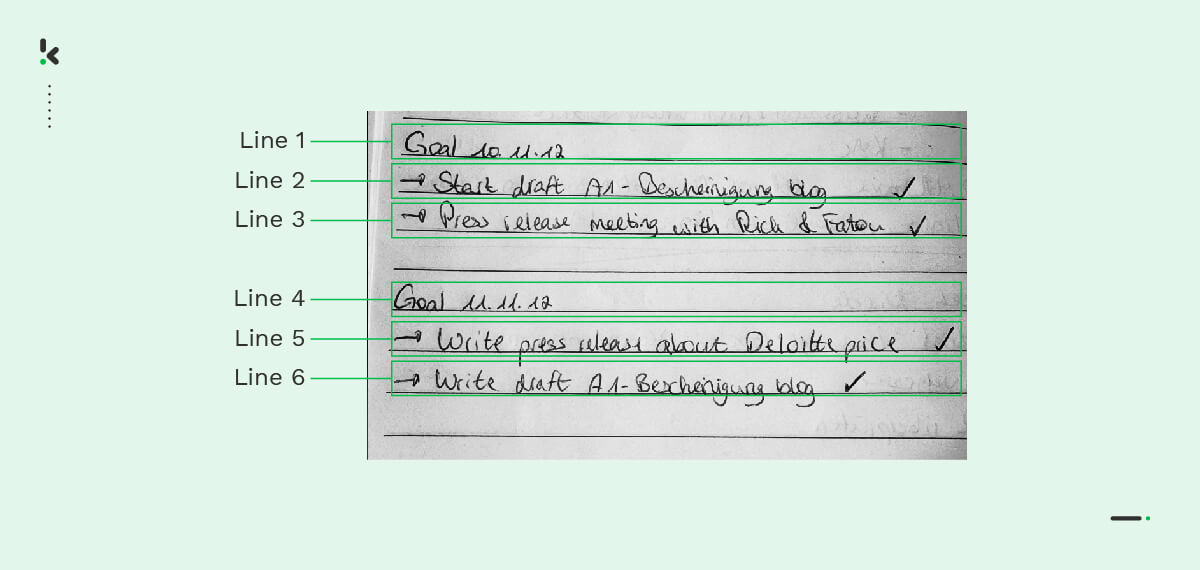 Line 1 Goal 10.11.12
Line 2 → Start draft A1-Bescheinigung blog ✓
Line 3 → Press release meeting with Rick & Fatou ✓
Line 4 Goal 11.11.12
Line 5 → Write press release about Deloitte price ✓
Line 6 → Write draft A1-Bescheinigung blog ✓